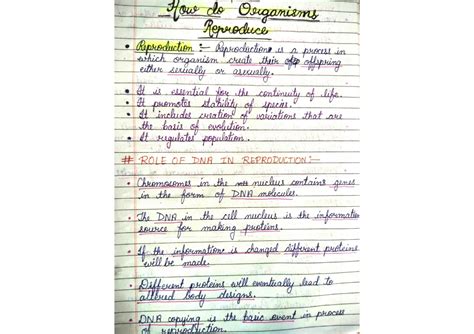 How do Organisms
Reproduce
• Reproduction :- Reproduction is a process in
which organism create their offspring
either sexually or asexually.
• It is essential for the continuity of life.
• It promotes stability of species.
• It includes creation of variations that are
the basis of evolution.
• It regulates population.
# ROLE OF DNA IN REPRODUCTION:-
• Chromosomes in the nucleus contains genes
in the form of DNA molecules.
• The DNA in the cell nucleus is the information
source for making proteins.
• If the information is changed different proteins
will be made.
• Different proteins will eventually lead to
altered body designs.
• DNA copying is the basic event in process
of reproduction.